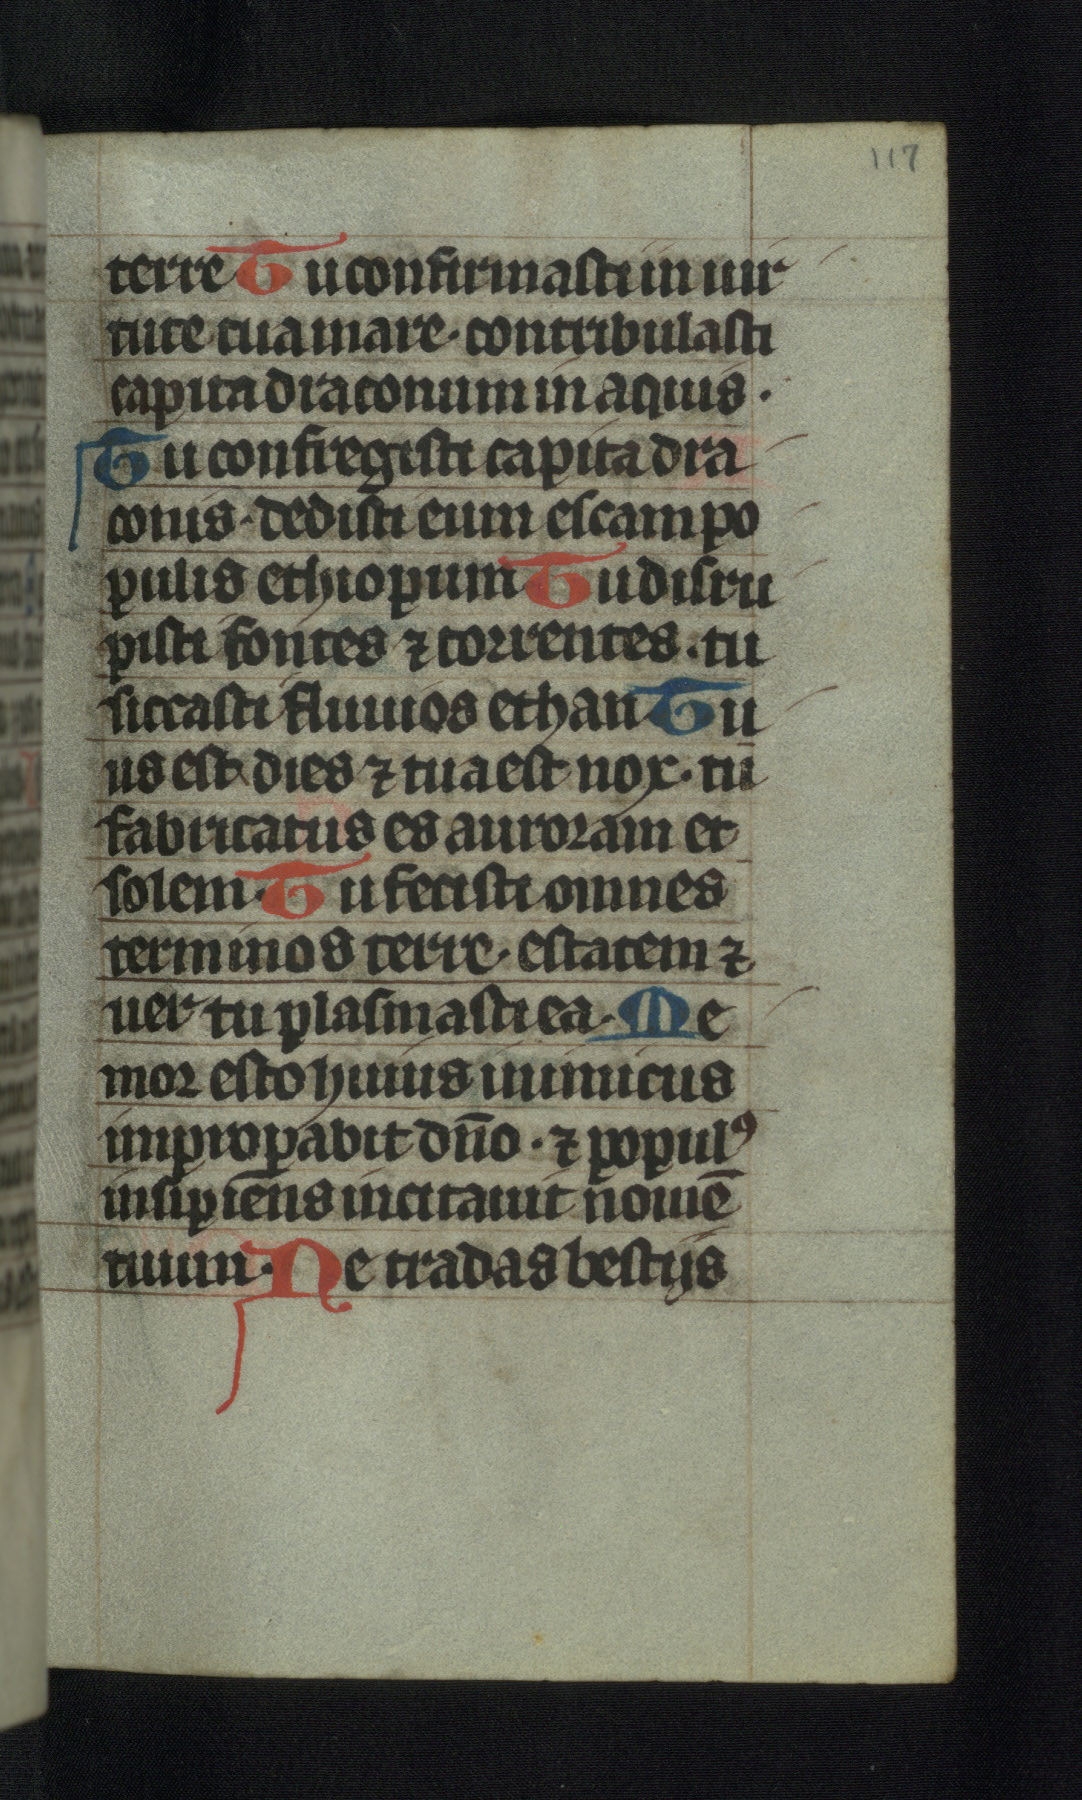 117
terre Tu confirmasti in uir
tute tua mare · contribulasti
capita draconum in aquis ·
Tu confregisti capita dra
conis · dedisti eum escam po
pulis ethiopum Tu disru
pisti fontes ⁊ torrentes · tu
siccasti fluuios ethan Tu
us est dies ⁊ tua est nox · tu
fabricatus es auroram et
solem · Tu fecisti omnes
terminos terre · estatem ⁊
uer tu plasmasti ea · Me
mor esto huius inimicus
improperabit dn̄o · ⁊ populꝰ
insipiēns incitauit nomē
tuum · Ne tradas bestijs